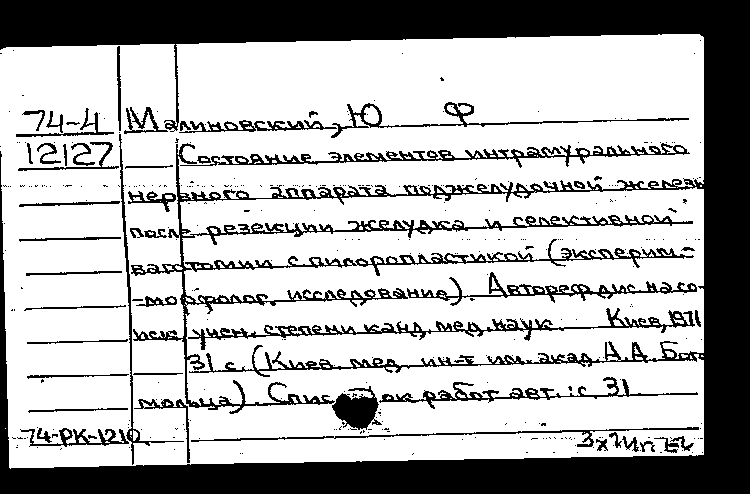 74-4 Малиновский, Ю Ф.
12127 Состояние элементов интрамурального
нервного аппарата поджелудочной железы
после резекции желудка и селективной
ваготомии с пилоропластикой (эксперим.-
-морфолог. исследование). Автореф дис на со-
иск учен. степени канд. мед. наук. Киев, 1971
31 с. (Киев. мед. ин-т им. акад. А.А. Бого
мольца). Спис работ авт.: с. 31
74-РК-1210.